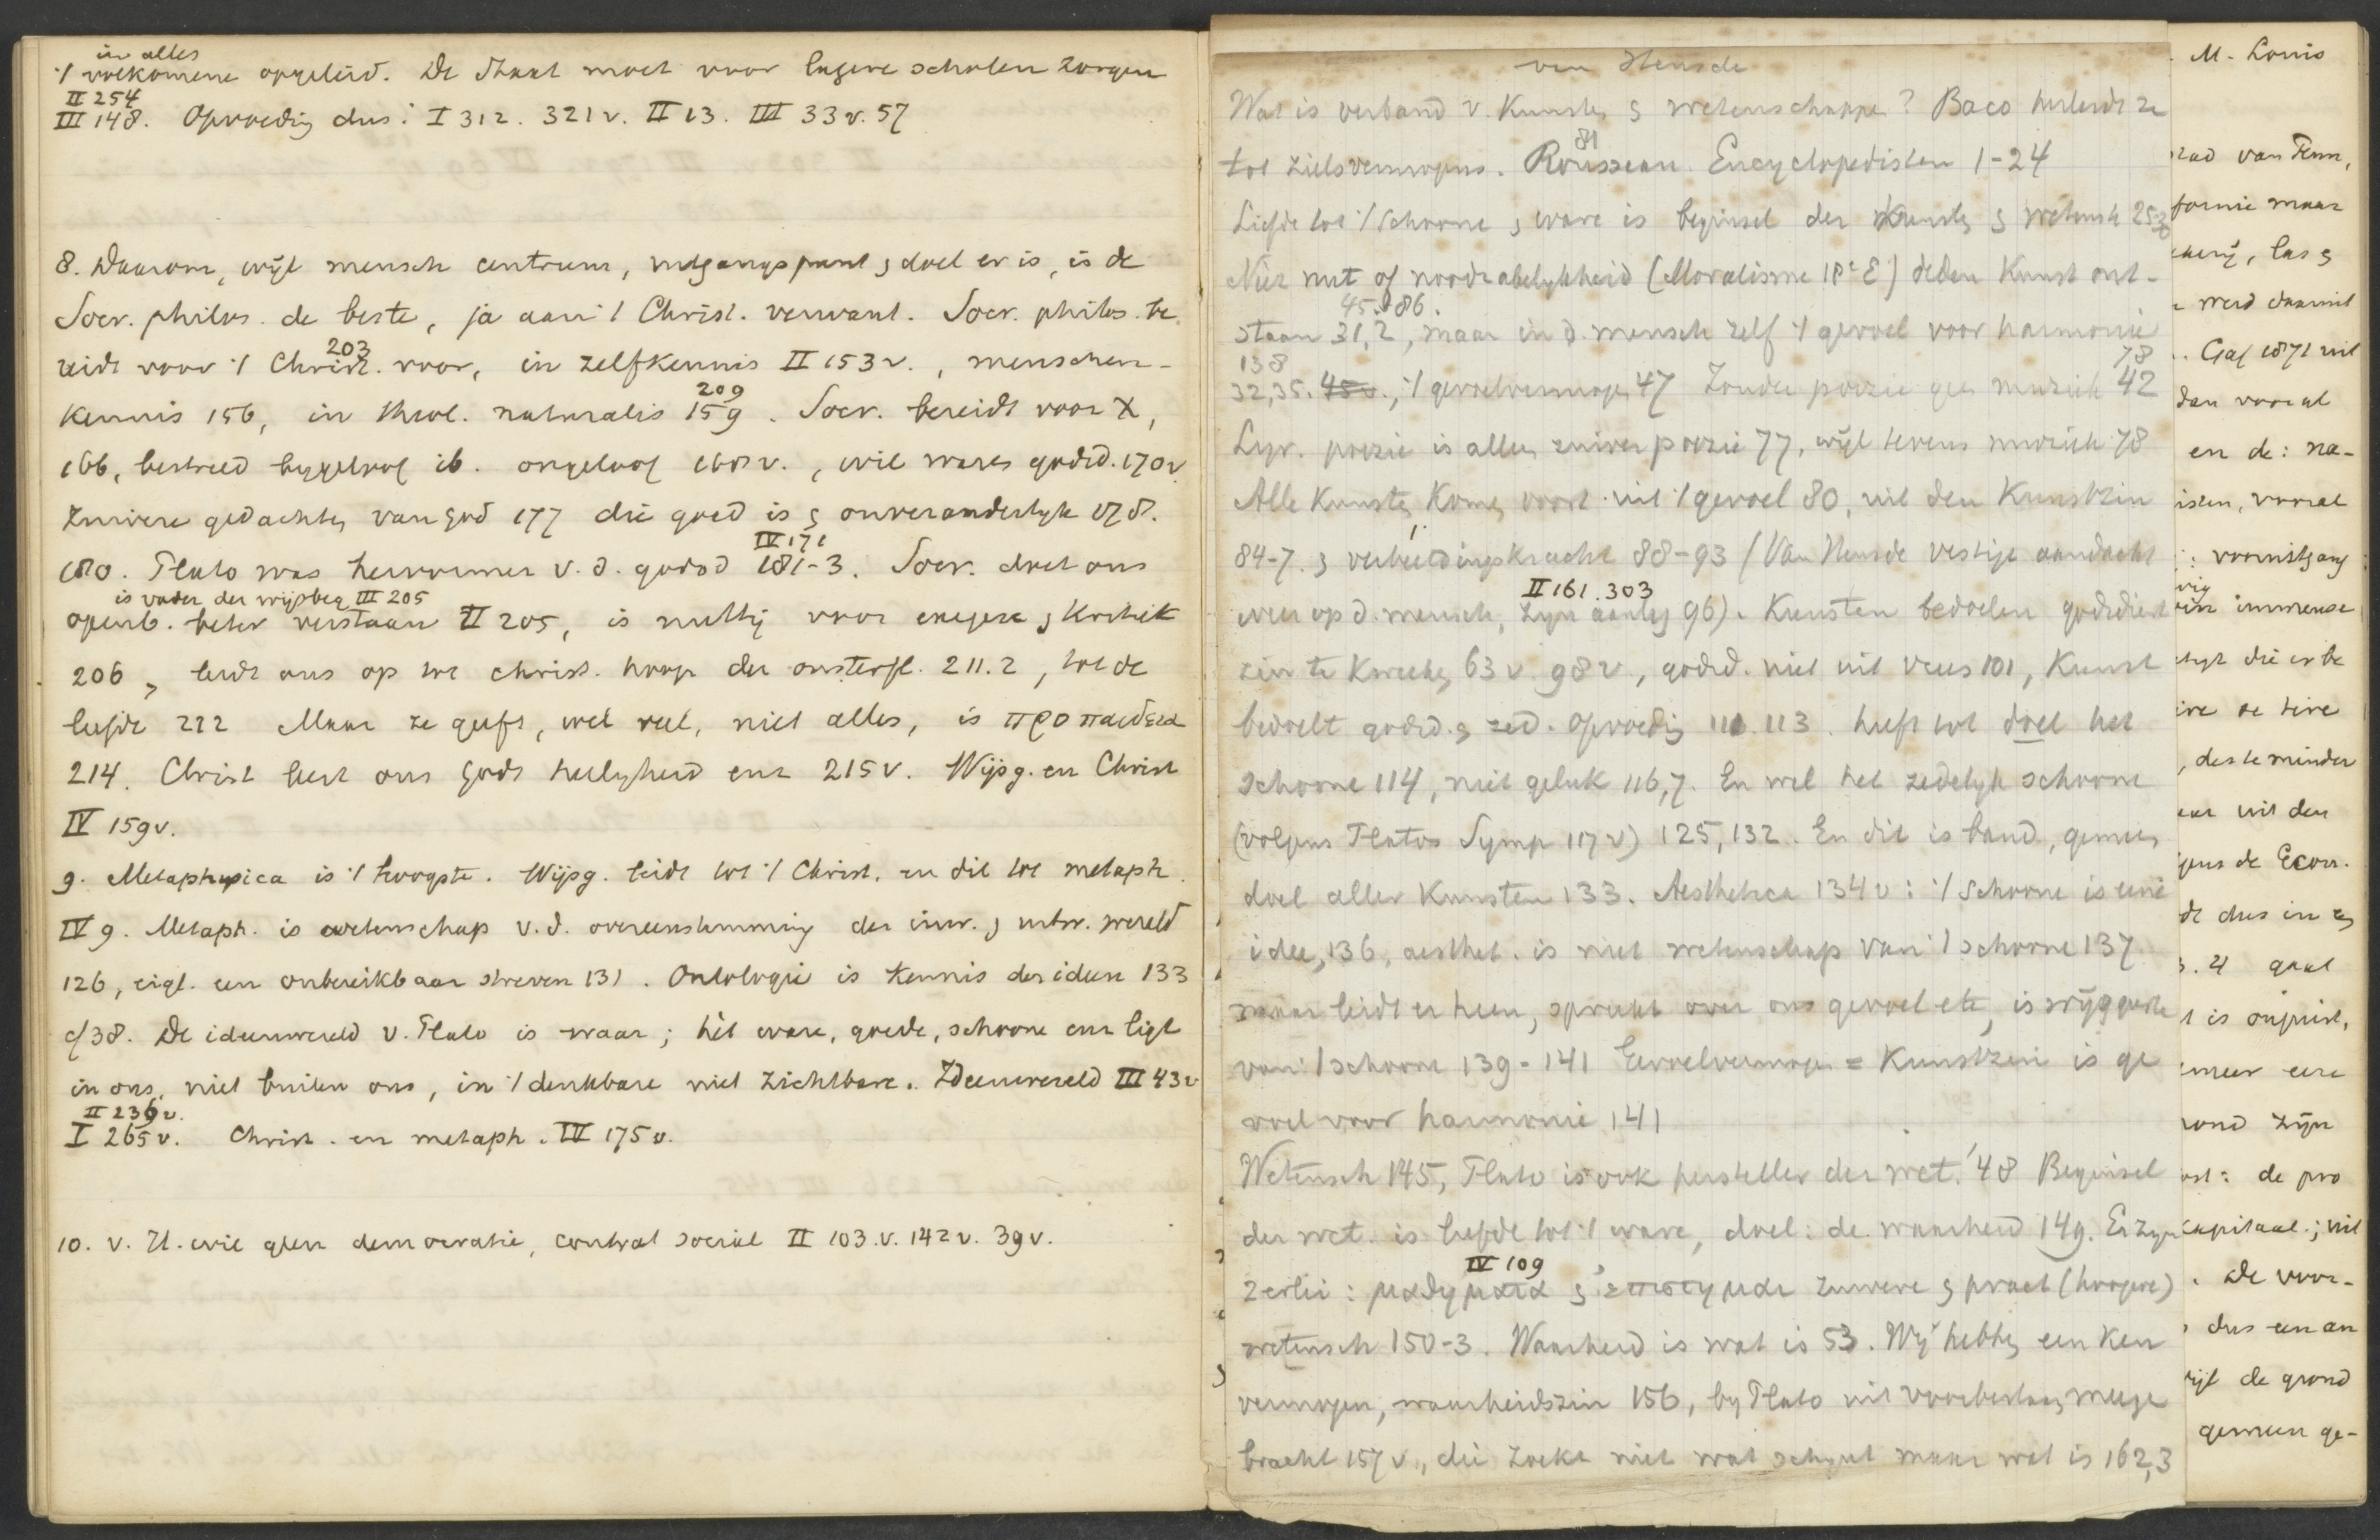 in alles
't volkomene opgeleid. De Staat moet voor lagere scholen zorgen
II 254
III 148. Opvoedig dus: I 312. 321 v. II 13. III 33 v. 57
8. Daarom, wijl mensch centrum, uitgangspunt & doel er is, is de
Socr. philos. de beste, ja aan 't Christ. verwant. Socr. philos. be
203
reidt voor 't Christ. voor, in zelfkennis II 153 v., menschen-
209
kennis 156, in theol. naturalis 159. Socr. bereidt voor X,
166, bestreed bygeloof ib. ongeloof 168 v., wil ware godsd. 170 v
Zuivere gedachte van God 177 die goed is & onveranderlyk 178.
IV 171
180. Plato was hervormer v. d. godsd 181-3. Socr. doet ons
is vader der wijsbeg III 205
openb. beter verstaan II 205, is nuttig voor exegese & kritiek
206, leidt ons op tot christ. hoop der onsterfl. 211.2, tot de
liefde 212 Maar ze geeft, wel veel, niet alles, is προπαιδεια
214. Christ leert ons Gods heilyheid enz 215 v. Wijsg. en Christ
IV 159 v.
9. Metaphysica is 't hoogste. Wijsg. leidt tot 't Christ. en dit tot metaph.
IV 9. Metaph. is wetenschap v. d. overeenstemming der inw. & uitw. wereld
126, eigl. een onbereikbaar streven 131. Ontologie is kennis der ideen 133
cf 38. De ideenwereld v. Plato is waar; het ware, goede, schoone enz ligt
in ons, niet buiten ons, in 't denkbare niet zichtbare. Ideenwereld III 43 v
II 236 v.
I 265 v. Christ. en metaph. IV 175 v.
10. v. H. wil geen democratie, contrat social II 103 v. 142 v. 39 v.
van Heusde
Wat is verband v. Kunste & wetenschappe? Baco herleidt ze
81
tot zielsvermogens. Rousseau. Encyclopedisten 1-24
Liefde tot 't schoone & ware is beginsel der Kunste & wetensch 25-30
Niet nut of noodzakelykheid (Moralisme 18e E) deden Kunst ont-
45. 86.
staan 31,2, maar in d. mensch zelf 't gevoel voor harmonie
138
78
32,35. , 't gevoelvermoge 47 Zonder poezie gee muziek 42
Lyr. poezie is allee zuiver poezie 77, wijl tevens muziek 78
Alle Kunste kome voort uit 't gevoel 80, uit den Kunstzin
84-7. & verbeeldingskracht 88-93 (Van Heusde vestigt aandacht
II 161. 303
weer op d. mensch, zyn aanleg 96). Kunsten bedoelen godsdienst
zin te kweeke 63 v. 98 v, godsd. niet uit vrees 101, Kunst
bedoelt godsd. & zed. opvoedig 111 113. heeft tot doel het
schoone 114, niet geluk 116,7. En wel het zedelyk schoone
(volgens Platos Symp 117 v) 125, 132. En dit is band, gemee
doel aller Kunsten 133. Aesthetica 134 v: 't schoone is eene
idee, 136, aesthet. is niet wetenschap van 't schoone 137
maar leidt er heen, spreekt over ons gevoel etc, is wijsgeerte
van 't schoone 139-141 Gevoelvermoge = Kunstzin is ge
voel voor harmonie 141
Wetensch 145, Plato is ook hersteller der wet. 148 Beginsel
der wet. is liefde tot 't ware, doel: de waarheid 149. Er zyn
IV 109
2erlei: μαθηματα & επιστημαι zuivere & pract (hoogere)
wetensch 150-3. Waarheid is wat is 53. Wij hebbe een ken
vermogen, waarheidszin 156, by Plato uit voorbestaan meege
bracht 157 v., die zoekt niet wat schynt maar wat is 162,3
M. Louis
van Penn,
fornie maar
las &
werd daarmit
Gaf 1871 uit
dan vooral
en de: na-
isten, vooral
vooruitgang
immense
die er be
des te minder
uit den
de Econ.
dus in
gaat
is onjuist,
meer eene
grond zijn
de pro
kapitaal; uit
De voor-
dus een an
de grond
gemeen ge-